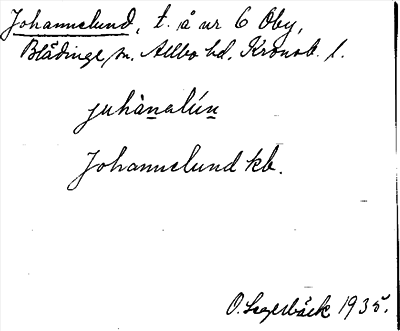 Johannelund, t. å nr 6 Oby,
Blädinge sn. Allbo hd. Kronob. l.
juhànalún
Johannelund kb.
O. 1935.